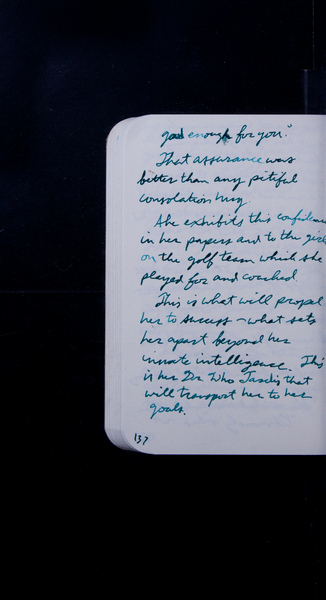 good enough for you."
That assurance was
better than any pitiful
consolation hug.
She exhibits this confidence
in her papers and to the girls
on the golf team which she
played for and coached.
This is what will propel
her to success – what sets
her apart beyond her
innate intelligence. This
is her Dr Who Tardis that
will transport her to her
goals.
137